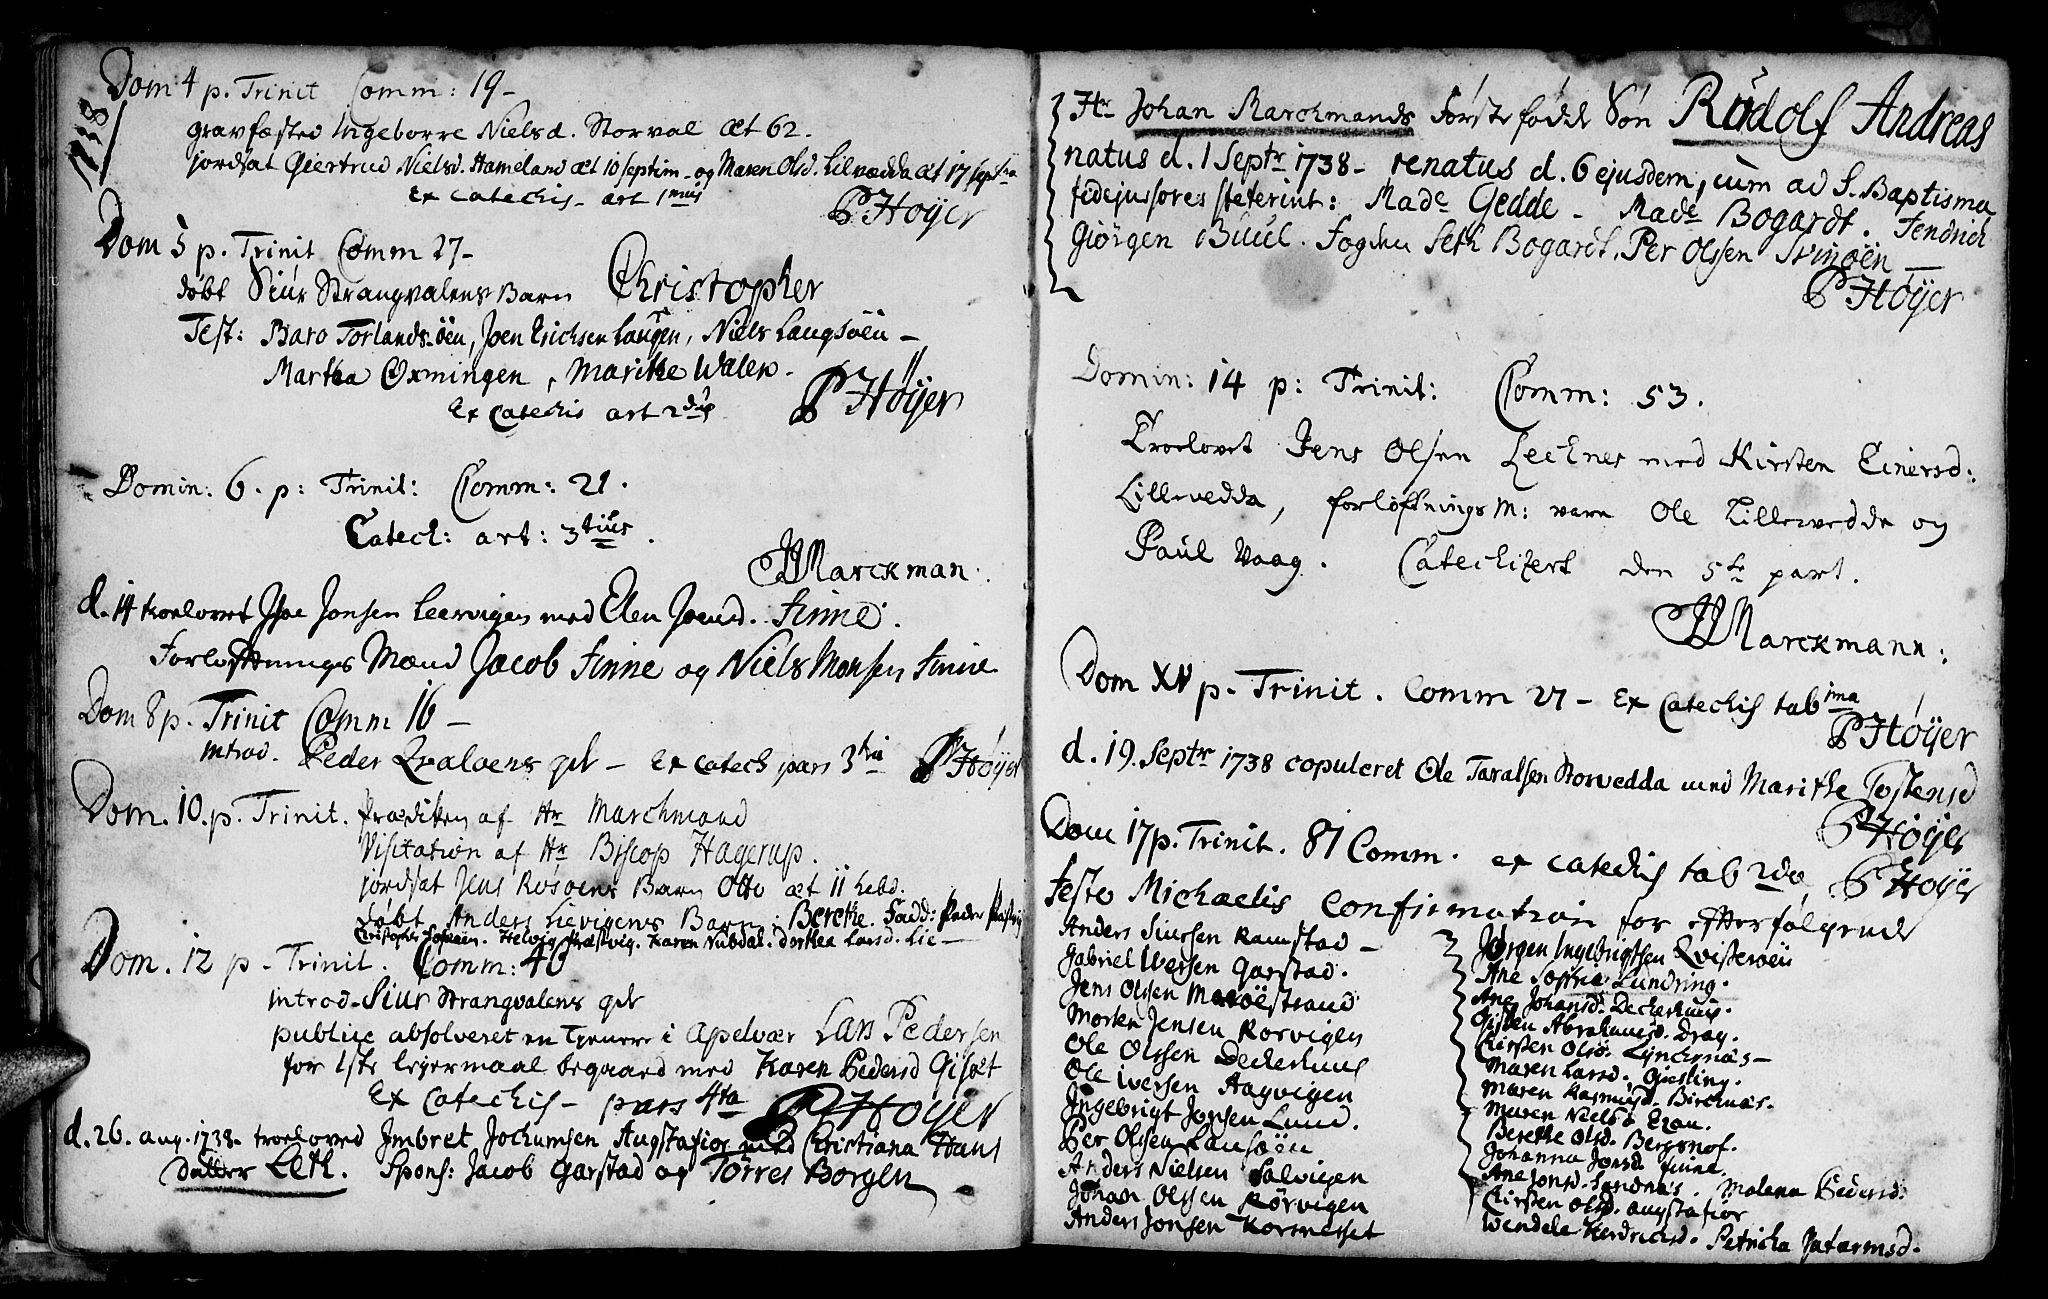 1738
Dom 4 p. Trinit Comm: 19-
gravfæsted Ingeborre Nielsd. Storval æt 62.
jordsat Giertrud Nielsd. Hameland æt 10 septim- og Maren Olsd. Lilvædda æt 17 sept
Ex Catechis- art 1mus
P Høyer
Dom 5 p. Trinit Comm 27-
døbt Siur Strangvalens Barn Christopher
Test: Baro Torlands-öen, Joen Erichsen Laugen, Niels Langsöen-
Martha Oxningen, Marithe Walen.
Ex Catechis art 2dus
P Høyer
Domin: 6. p: Trinit: Comm: 21.
Catech: art: 3tius.
Marckman.
d. 14 troelovet Jonsen Leervigen med Elen Joensd. Finne.
Forlofnings Mænd Jacob Finne og Niels Monsen Finne
Dom 8 p. Trinit Comm 16-
introd. Peder Qvaløens qv- Ex Catech pars 3tia P Høyer
Dom. 10. p. Trinit. Prædiken af Hr Marchmand
Visitation af Hr Biscop Hagerup.
jordsat Jens Rosøens Barn Otto æt 11 hebd.
Døbt Anders Lievigens Barn: Berethe. Fadd: Peder
Helvig Karen Nubdal. Dorthea Larsd. Lie-
Dom. 12 p. Trinit. Comm: 40
introd- Siur Strangvalens qv
publice absolveret en tjenere i Apelvær Lars Pedersen
for 1ste lejermaal begaaed med Karen Pedersd Gisøt
Ex Catechis- pars 4ta P Høyer
d. 26. aug. 1738. troeloved Imbret Jochumsen Augstafior med Christiana Hans
Datter Leth. Spons: Jacob Garstad og Tørres Borgen
Hr Johan Marchmands første fødde Søn Rudolf Andreas
natus d. 1 Septr 1738- renatus d. 6 ejusdem, cum ad S. Baptisma
fidejussores steterint: Made Gedde- Made Bogardt. Fendrich
Giørgen Buul. Fogden Seth Bogardt, Per Olssen Svinøen-
P Høyer
Domin: 14 p: Trinit: Comm: 53.
Troelovet Jens Olsen Lechnes med Kirsten Einersd:
Lillevedda, forlofnings M: vare Ole Lillevedde og
Paul Vaag. Catechizert den 5te part.
Marckmann:
Dom XV p. Trinit. Comm 27- Ex Catechis tab 1ma
P Høyer
d. 19. Septr 1738 copuleret Ole Taralsen Storvedda med Marithe Tostensd
P Høyer
Dom 17 p. Trinit. 87 Comm. ex catechis tab 2da, P Høyer
Festo Michaelis Confirmation for efterfølgende
Anders Siursen Ramstad-
Gabriel Iversen Garstad.
Jens Olssen Marøestrand
Morten Jensen Rorvigen
Ole Olssen Deckerhuus
Ole Iversen Aagvigen
Ingebrigt Jonsen Lund.
Per Olssen Lansøen
Anders Nielsen Salvigen
Johan Olssen Rörvigen
Anders Jonsen Korsnesset
Jørgen Ingebrigtsen Qvisterøen
Ane Sophia Lundring.
Ane Johansd. Deckerhuus.
Gisken Abrahamsd. Drag.
Kirsten Olsd. Lyngsnæs-
Maren Larsd. Giesling.
Maren Rasmusd. Birchnæs.
Maren Nielsd
Berethe Olsd. Bergsnof.
Johanna Jonsd Finne.
Ane Jonsd. Landnæs. Malena Pedersd.
Kirsten Olsd. Augstafior
Wendele Hendrichsd. Petricha